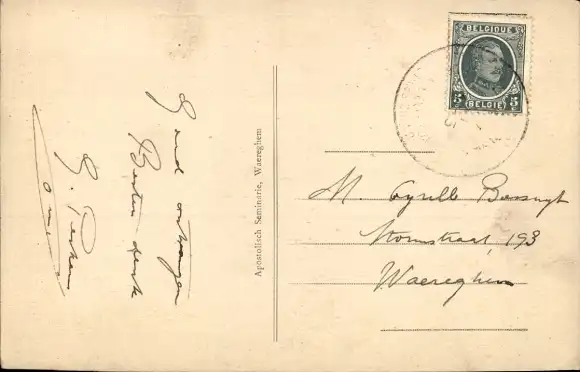 Goed ontvangen
Besten dank
G.
o m i
Apostolisch Seminarie, Waereghem
BELGIQUE
5c 5c
BELGIË
M. Cyrille Bossuyt
Stormstraat, 193
Waereghem